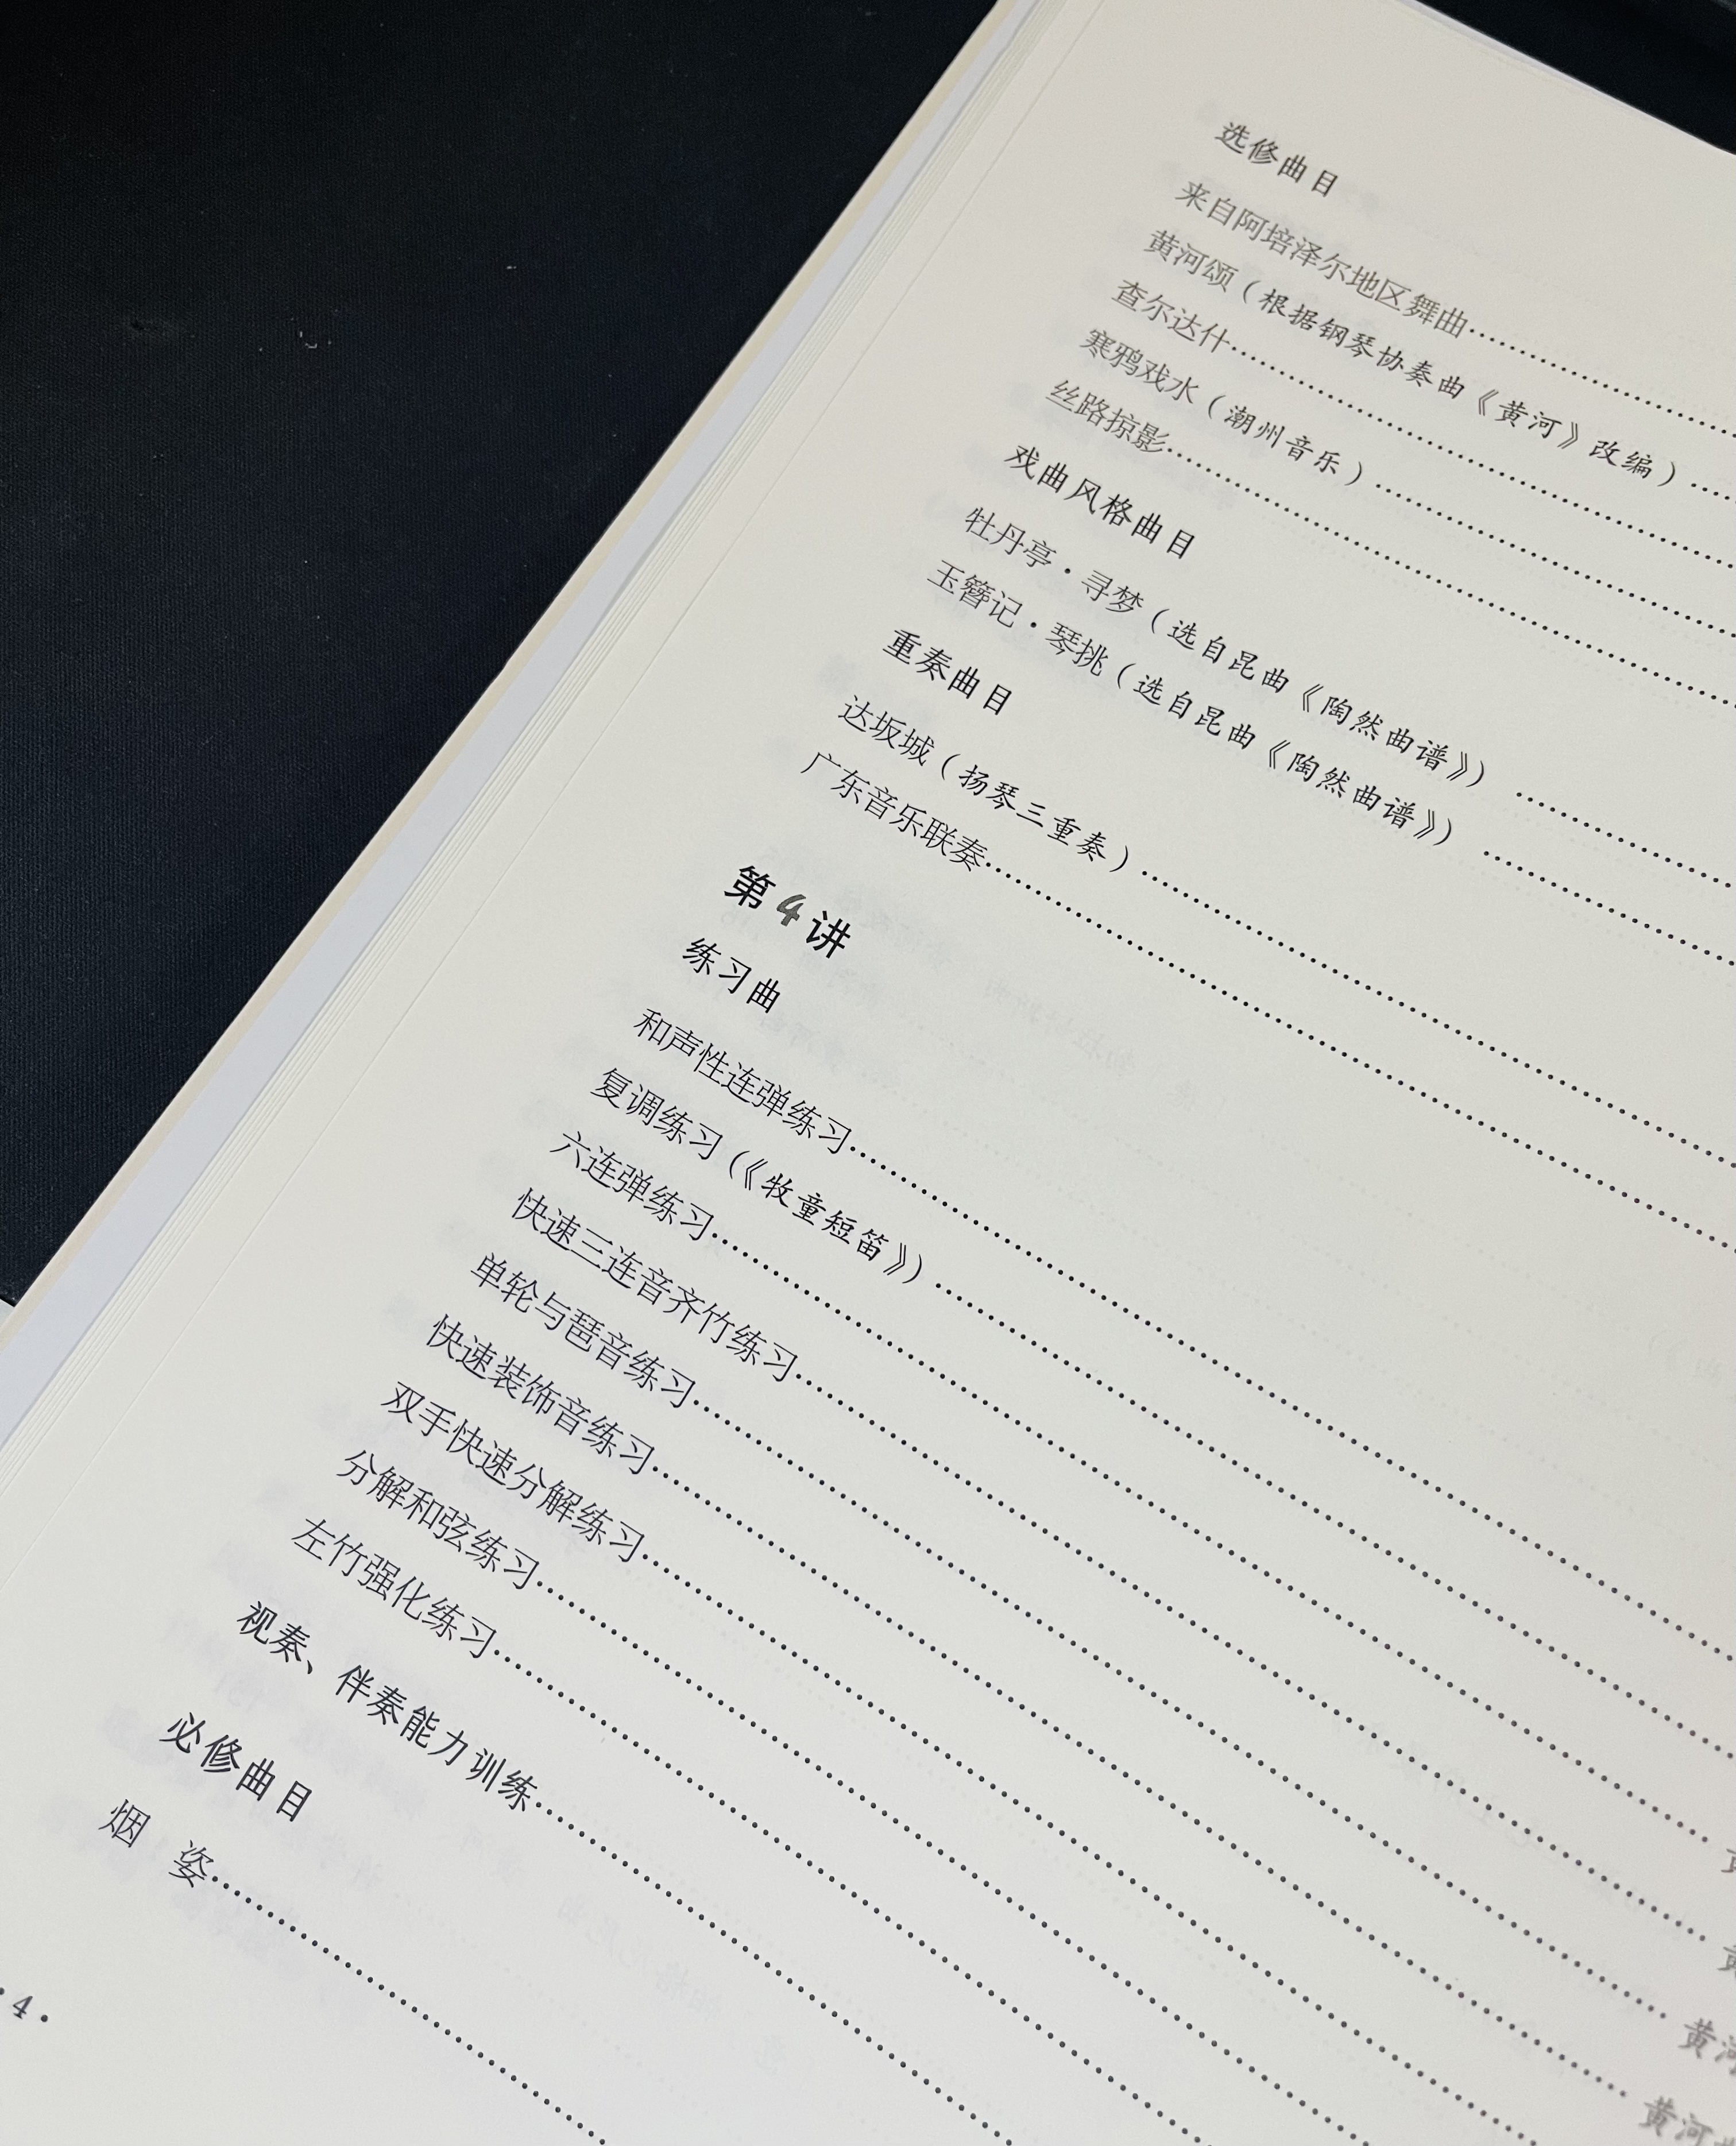 选修曲目
来自阿培泽尔地区舞曲
黄河颂（根据钢琴协奏曲《黄河》改编）
查尔达什
寒鸦戏水（潮州音乐）
丝路掠影
戏曲风格曲目
牡丹亭·寻梦（选自昆曲《陶然曲谱》）
玉簪记·琴挑（选自昆曲《陶然曲谱》）
重奏曲目
达坂城（扬琴三重奏）
广东音乐联奏
第4讲
练习曲
和声性连弹练习
复调练习（《牧童短笛》）
六连弹练习
快速三连音齐竹练习
单轮与琶音练习
快速装饰音练习 黄
双手快速分解练习 黄
分解和弦练习 黄河
左竹强化练习 黄河
视奏、伴奏能力训练
必修曲目
烟 姿
·4·